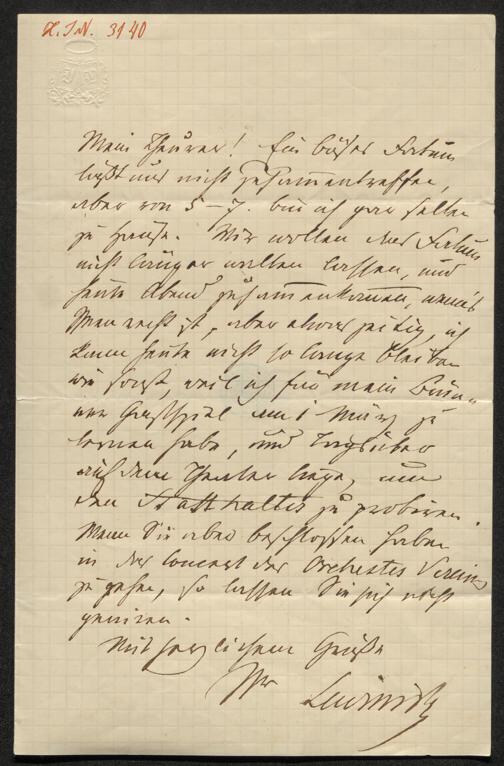 H. I. N. 3140
Mein Theurer! Ein böses Fatum
läßt uns nicht zusammentreffen,
aber von 5–7. bin ich gar selten
zu Hause. Wir wollen das Fatum
nicht länger walten lassen, und
heute Abend zusammenkommen, wenn's
Ihnen recht ist, aber etwas zeitig, ich
kann heute nicht so lange bleiben
wie sonst, weil ich für mein
Gastspiel am 1 März zu
lernen habe, und tagsüber
auf dem Theater liege, um
den Statthalter zu probiren.
Wenn Sie aber beschlossen haben
in das Concert des Orchester Vereins
zu gehen, so lassen Sie sich nicht
geniren.
Mit herzlichem Gruße
Ihr Lewinsky